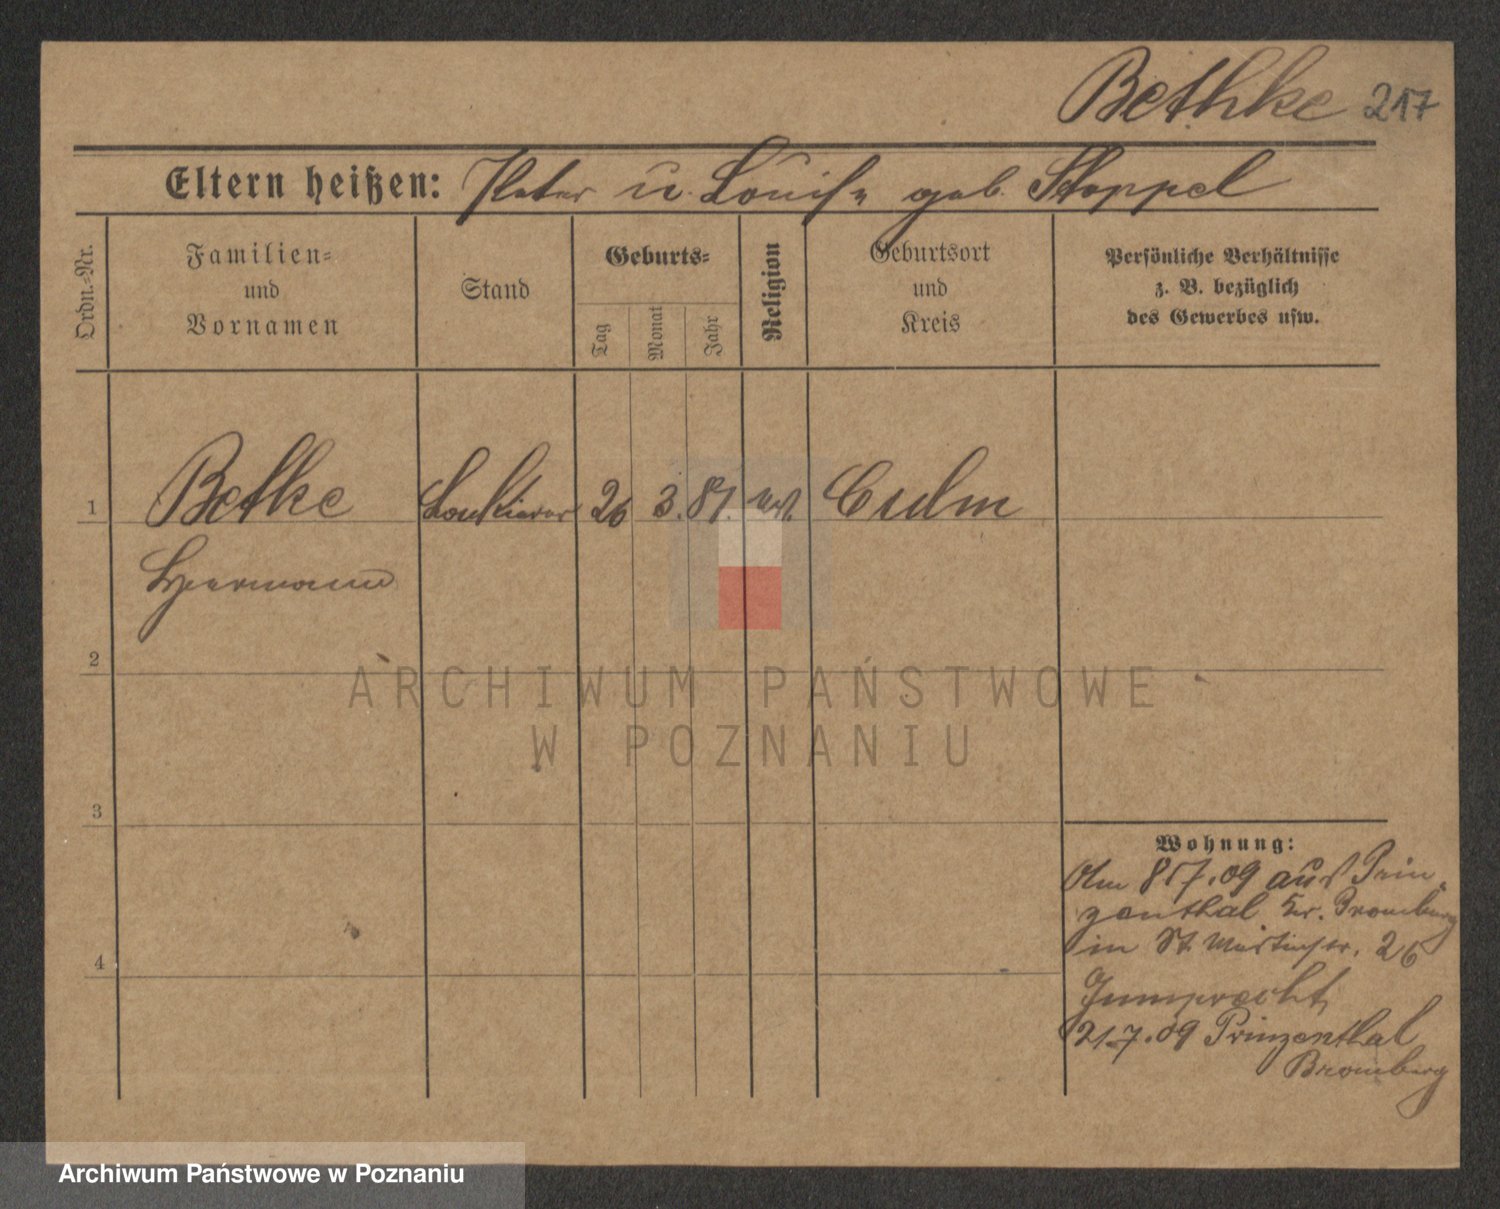 Bethke 217
Eltern heißen: Peter u. Louise geb. Stoppel
Ordn.-Nr.
Familien-
und
Vornamen
Stand
Geburts-
Tag
Monat
Jahr
Religion
Geburtsort
und
Kreis
Persönliche Verhältnisse
z. B. bezüglich
des Gewerbes usw.
1 Bethke 26 3. 87. Culm
Hermann
2
ARCHIWUM PAŃSTWOWE
W POZNANIU
3
4
Wohnung:
Am 8/7.09 aus Prin-
zenthal Kr. Bromberg
in St. Martinstr. 26
21.7.09 Prinzenthal
Bromberg
Archiwum Państwowe w Poznaniu